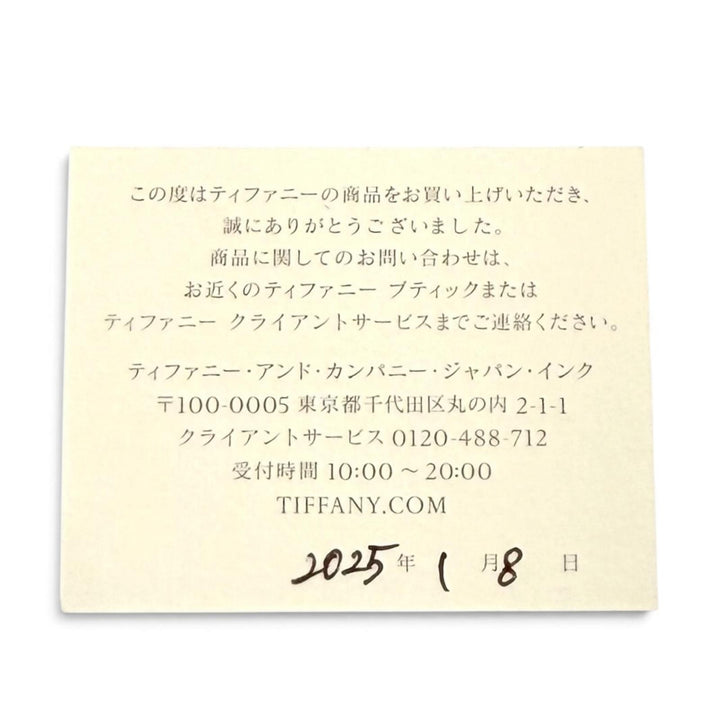 この度はティファニーの商品をお買い上げいただき、
誠にありがとうございました。
商品に関してのお問い合わせは、
お近くのティファニー ブティックまたは
ティファニー クライアントサービスまでご連絡ください。
ティファニー・アンド・カンパニー・ジャパン・インク
〒100-0005 東京都千代田区丸の内 2-1-1
クライアントサービス 0120-488-712
受付時間 10:00 ～ 20:00
TIFFANY.COM
2025 年 1 月 8 日